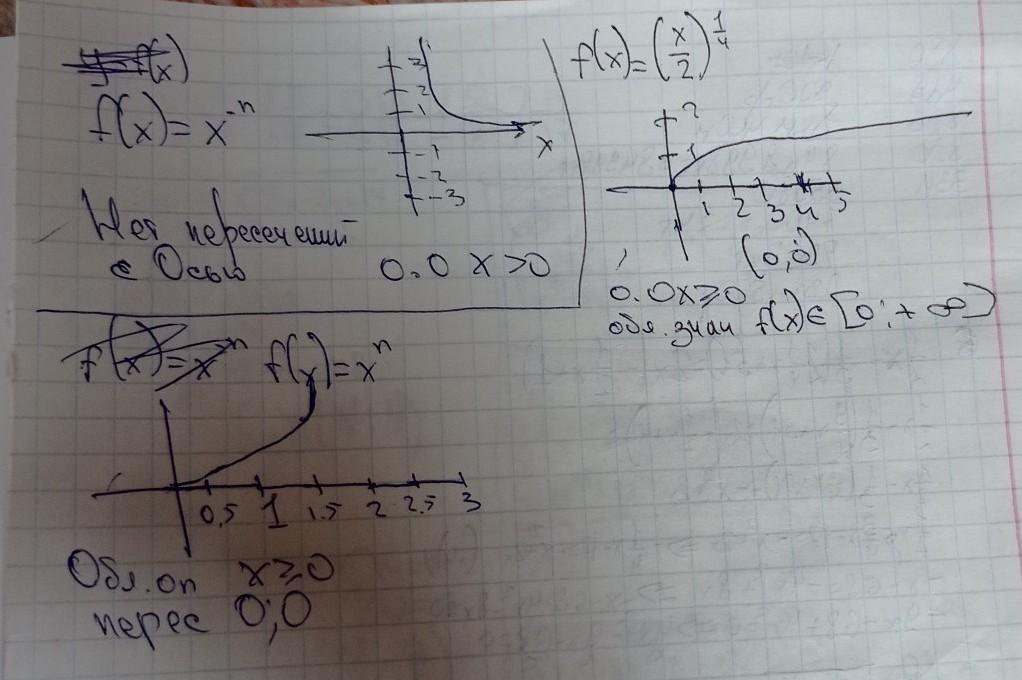 f(x)
f(x) = x^-n
3
2
1
-1
-2
-3
x
Нет пересечений
с Осью
0.0 x>0
f(x) = (x/2)^1/4
2
1
1 2 3 4 5
(0,0)
0.0x≥0
обл. знач f(x)∈[0;+∞)
f(x) = x^-n
f(x) = x^n
0,5 1 1.5 2 2.5 3
Обл.оп x≥0
перес 0;0